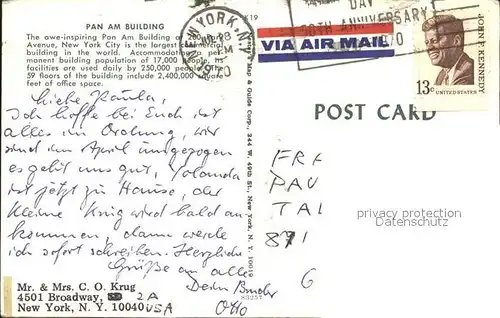 PAN AM BUILDING
The awe-inspiring Pan Am Building at 200
Avenue, New York City is the largest commercial
building in the world. Accommodating a per-
manent building population of 17,000 people, its
facilities are used daily by 250,000 people. The
59 floors of the building include 2,400,000 square
feet of office space.
K19
NEW YORK, N.Y.
PM
1970
DAY
ANNIVERSARY
1970
VIA AIR MAIL
JOHN F. KENNEDY
13c UNITED STATES
POST CARD
Liebe Paula,
Ich hoffe bei Euch ist
alles in Ordnung, wir
sind im April umgezogen
es geht uns gut, Yolanda
ist jetzt zu Hause, der
kleine Krug wird bald an
kommen, dann werde
ich sofort schreiben. Herzliche
Grüße an alle
Dein Bruder
Otto
Mr. & Mrs. C. O. Krug
4501 Broadway, 2A
New York, N. Y. 10040 USA
Map & Guide Corp., 244 W. 49th St., New York, N. Y. 10019
83257
FRA
PAU
TAL
871
G
privacy protection
watermark